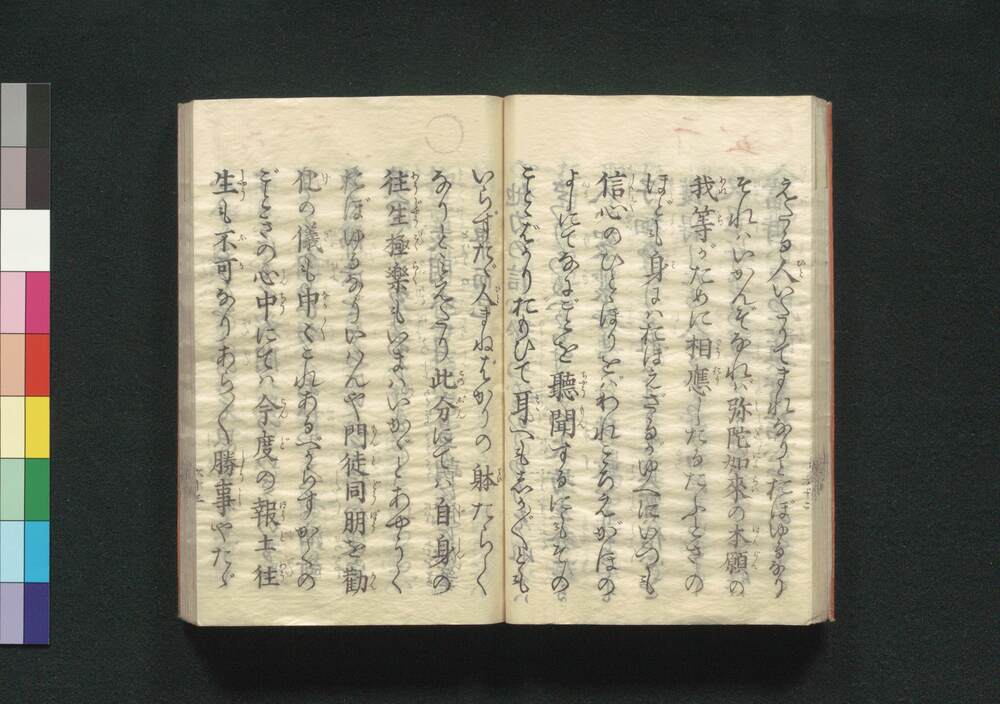 えたる人いたりてまれなりとおぼゆるなり
それはいかんぞなれば弥陀如來の本願の
我等がために相應したるたふときの
ほども身にはおぼえざるがゆへにいつも
信心のひととほりをばわれこころえがほの
よしにてなにごとを聽聞するにもそのこ
とばかりおもひて耳へもしかしかとも
いらずただ人まねばかりの躰たらく
なりとみえたり此分にては自身の
往生極楽もいまはいかがとあやうく
おぼゆるなりいはんや門徒同朋を勸
化の儀も中〱これあるべからずかくの
ごときの心中にては今度の報土往
生も不可なりあら〱勝事やただ